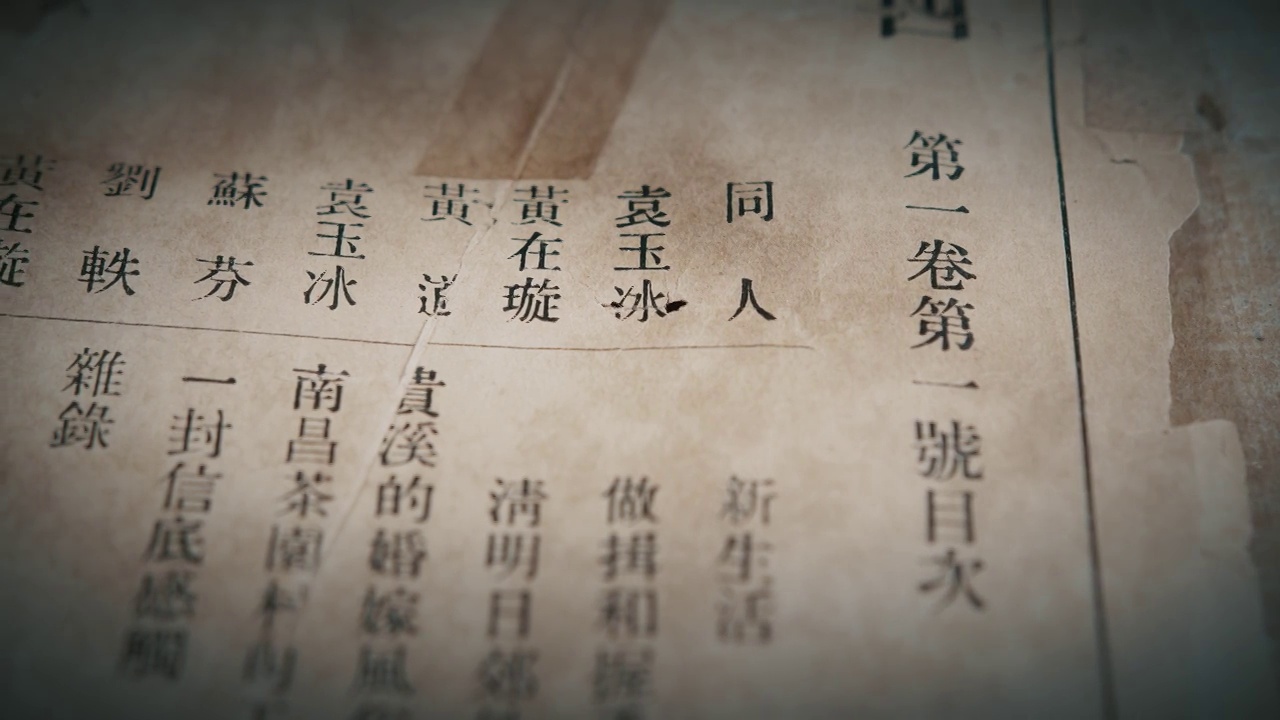 第一卷第一號目次
同人
新生活
袁玉冰
做揖和握
黃在璇
清明日郊
黃道
貴溪的婚嫁風俗
袁玉冰
南昌茶園
蘇芬
一封信底感觸
劉軼
雜錄
黃在璇